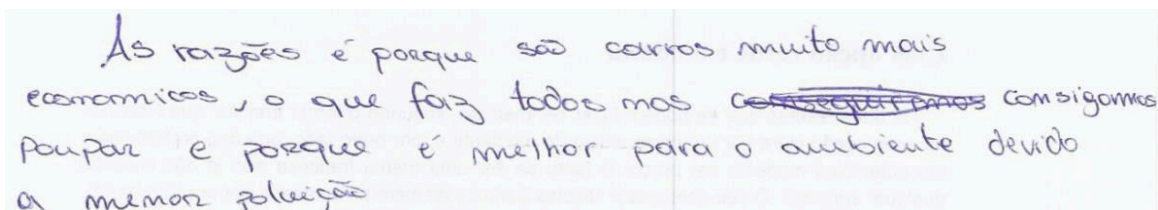 As razões é porque são carros muito mais
economicos, o que faz todos nos conseguirmos consigamos
poupar e porque é melhor para o ambiente devido
a menor poluição